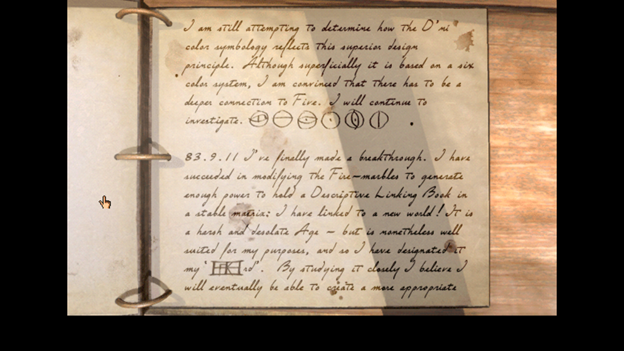 I am still attempting to determine how the D'ni
color symbology reflects this superior design
principle. Although superficially it is based on a six
color system, I am convinced that there has to be a
deeper connection to Fire. I will continue to
investigate.
83.9.11 I've finally made a breakthrough. I have
succeeded in modifying the Fire-marbles to generate
enough power to hold a Descriptive Linking Book in
a stable matrix: I have linked to a new world! It is
a harsh and desolate Age – but is nonetheless well
suited for my purposes, and so I have designated it
my ' rd'. By studying it closely I believe I
will eventually be able to create a more appropriate